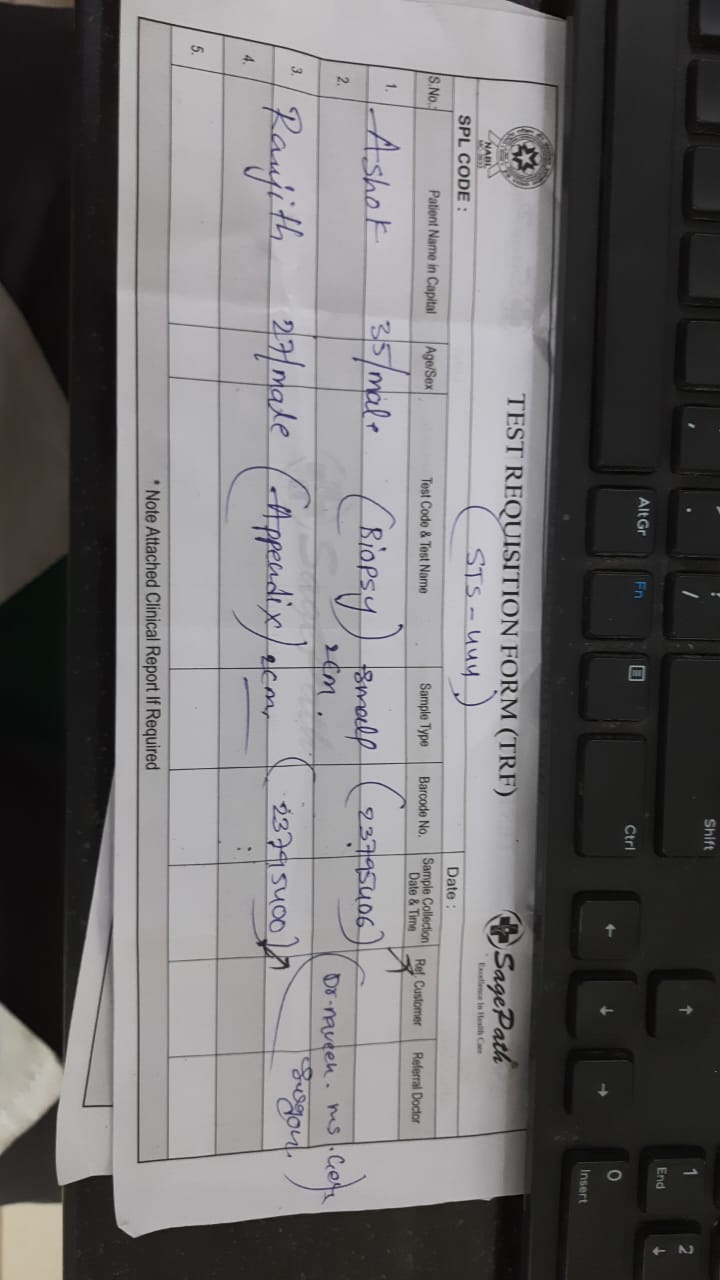 NABL
TEST REQUISITION FORM (TRF)
SagePath
Excellence In Health Care
SPL CODE : (STS-444) Date :
S.No. Patient Name in Capital Age/Sex Test Code & Test Name Sample Type Barcode No. Sample Collection Date & Time Ref. Customer Referral Doctor
1. Ashok 35/male (Biopsy) small (23795406)
2. 2cm. (Dr. naveen. ms.
3. Ranjith 27/male (Appendix) 2cm, (23795400)
4.
5.
* Note Attached Clinical Report If Required
Shift
AltGr
Fn
Ctrl
1
End
2
0
Insert